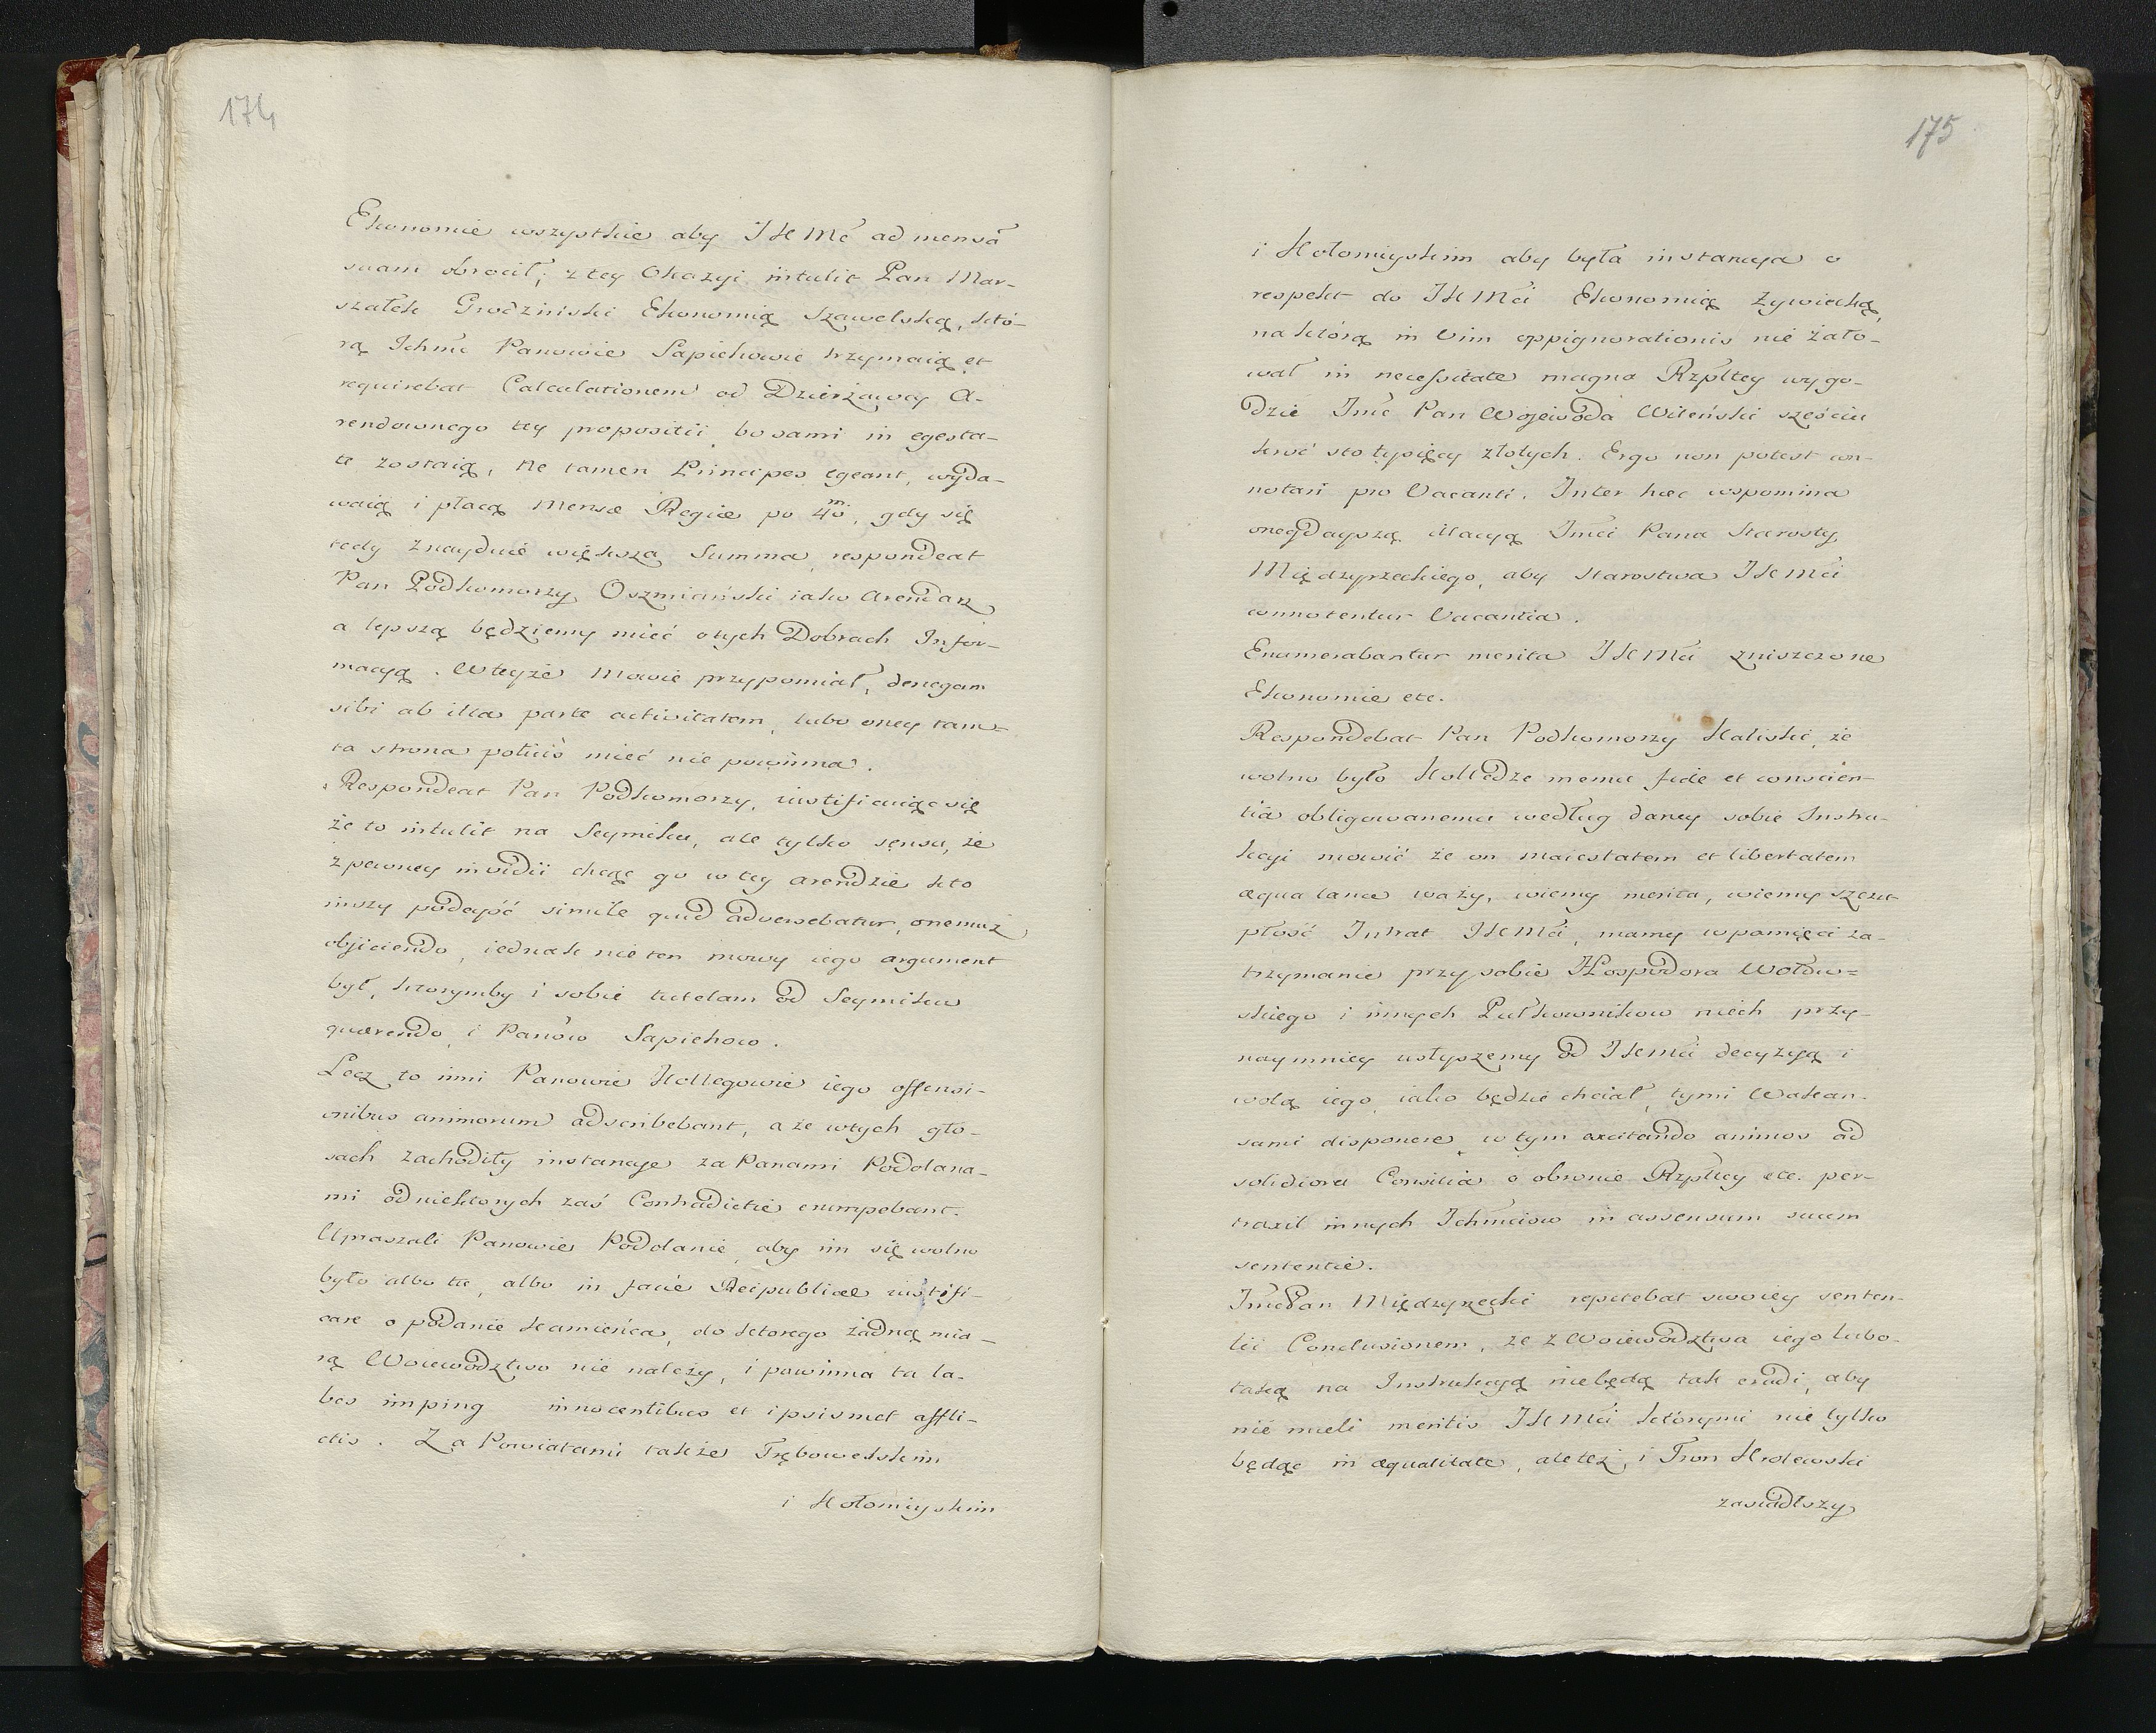 174
Ekonomie wszystkie aby JKMć ad mensã
suam obrocił; z tey Okazyi intulit Pan Mar-
szałek Grodziński Ekonomią Szawelską, któ-
rą Ichmć Panowie Sapiehowie trzymaią et
requirebat Calculationem od Dzierżawcy A-
rendownego tey propositii, bo sami in egesta-
te zostaią, ne tamen Principes egeant, wyda-
waią i płacą Mensæ Regiæ po 40 m, gdy się
tedy znayduie większa Summa, respondeat
Pan Podkomorzy Oszmiański iako Arendarz
a lepszą będziemy mieć o tych Dobrach Infor-
macyą. W teyże Mowie przypomiał, denegam
sibi ab illa parte activitatem, lubo oney tam-
ta strona potius mieć nie powinna.
Respondeat Pan Podkomorzy, iustifikuiąc się
że to intulit na Seymiku, ale tylko sensu, że
z pewney invidii chcąc go w tey arendzie kto
inszy podeyść simile quid adversebatur, onemuż
objiciendo, iednak nie ten mowy iego argument
był, ktorymby i sobie tutelam od Seymiku
quærendo, i Panów Sapiehow.
Lecz to inni Panowie Kollegowie iego offensi-
onibus animorum adscribebant, a że w tych gło-
sach zachodiły instancye za Panami Podolana-
mi od niektorych zaś Contradictie erumpebant.
Upraszali Panowie Podolanie, aby im się wolno
było albo tu, albo in facie Reipublicæ iustifi-
care o podanie Kamieńca, do ktorego żadną mia-
rą Woiewodztwo nie należy, i powinna ta la-
bes imping innocentibus et ipsismet affli-
ctis. Za Powiatami także Trębowelskim
i Kołomiyskim
175
i Kołomiyskim aby była instancya o
respekt do JKMći Ekonomią Żywiecką,
na którą in vim oppignorationis nie żało-
wał in necessitate magna Rzpltey wygo-
dzić Jmć Pan Wojewoda Wileński sześciu
kroć sto tysięcy złotych. Ergo non potest con-
notari pro Vacanti. Inter hæc wspomina
onegdayszą illacyą Jmći Pana Starosty
Międzyrzeckiego, aby Starostwa JKMći
connotentur Vacantia.
Enumerabantur merita JKMći zniszczone
Ekonomie etc.
Respondebat Pan Podkomorzy Haliski, że
wolno było Kolledze memu fide et conscien-
tia obligowanemu według daney sobie Instru-
kcyi mowić że on maiestatem et libertatem
æqua lance waży, wiemy merita, wiemy szczu-
płość Intrat JKMći, mamy w pamięci za-
trzymanie przy sobie Hospodora Woło-
skiego i innych Pułkownikow niech przy-
naymniey usłyszemy od JKMći decyzyą i
wolą iego, iako będzie chciał, tymi Wakan-
sami disponere, w tym excitando animos ad
solidiora Consilia o obronie Rzpltey etc. per-
traxit innych Ichmciow in assensum suæ
sententiæ.
Jmć Pan Międzyrzecki repetebat swoiey senten-
tii Conclusionem, że z Woiewodztwa iego lubo
taką na Instrukcyą nie będą tak crudi, aby
nie mieli meritis JKMći któremi nie tylko
będąc in æqualitate, ale też, i Tron Krolewski
zasiadłszy